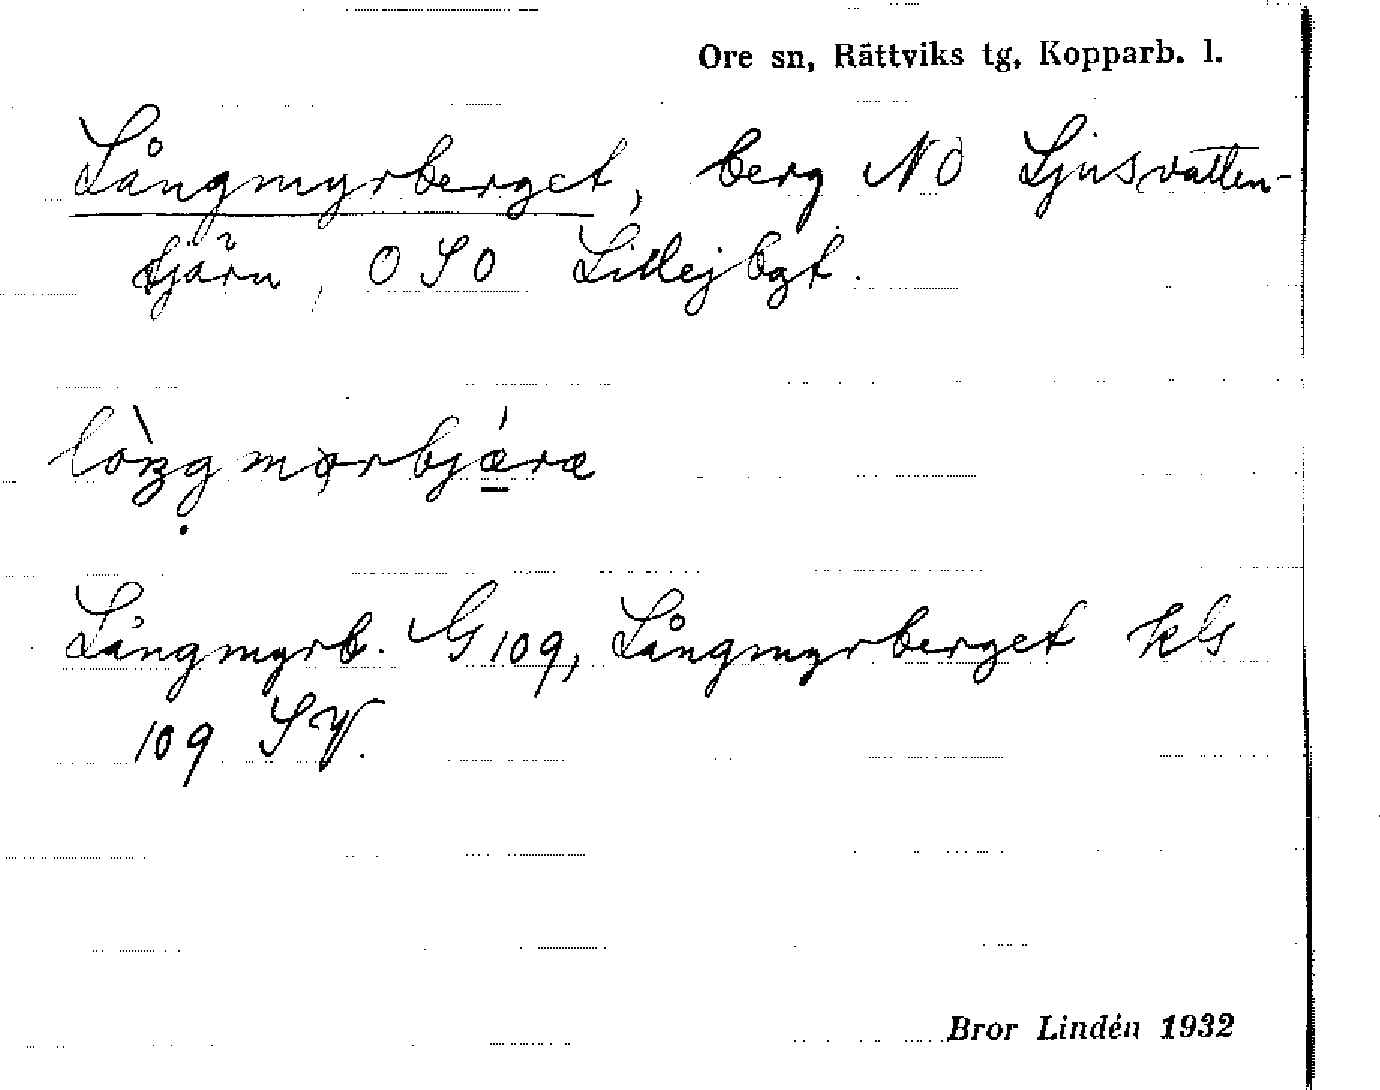 Ore sn, Rättviks tg, Kopparb. l.
Långmyrberget, berg NO Ljusvatten-
tjärn, OSO Lillejbgt.
Långmyrb. G 109, Långmyrberget kls
109 SV.
Bror Lindén 1932